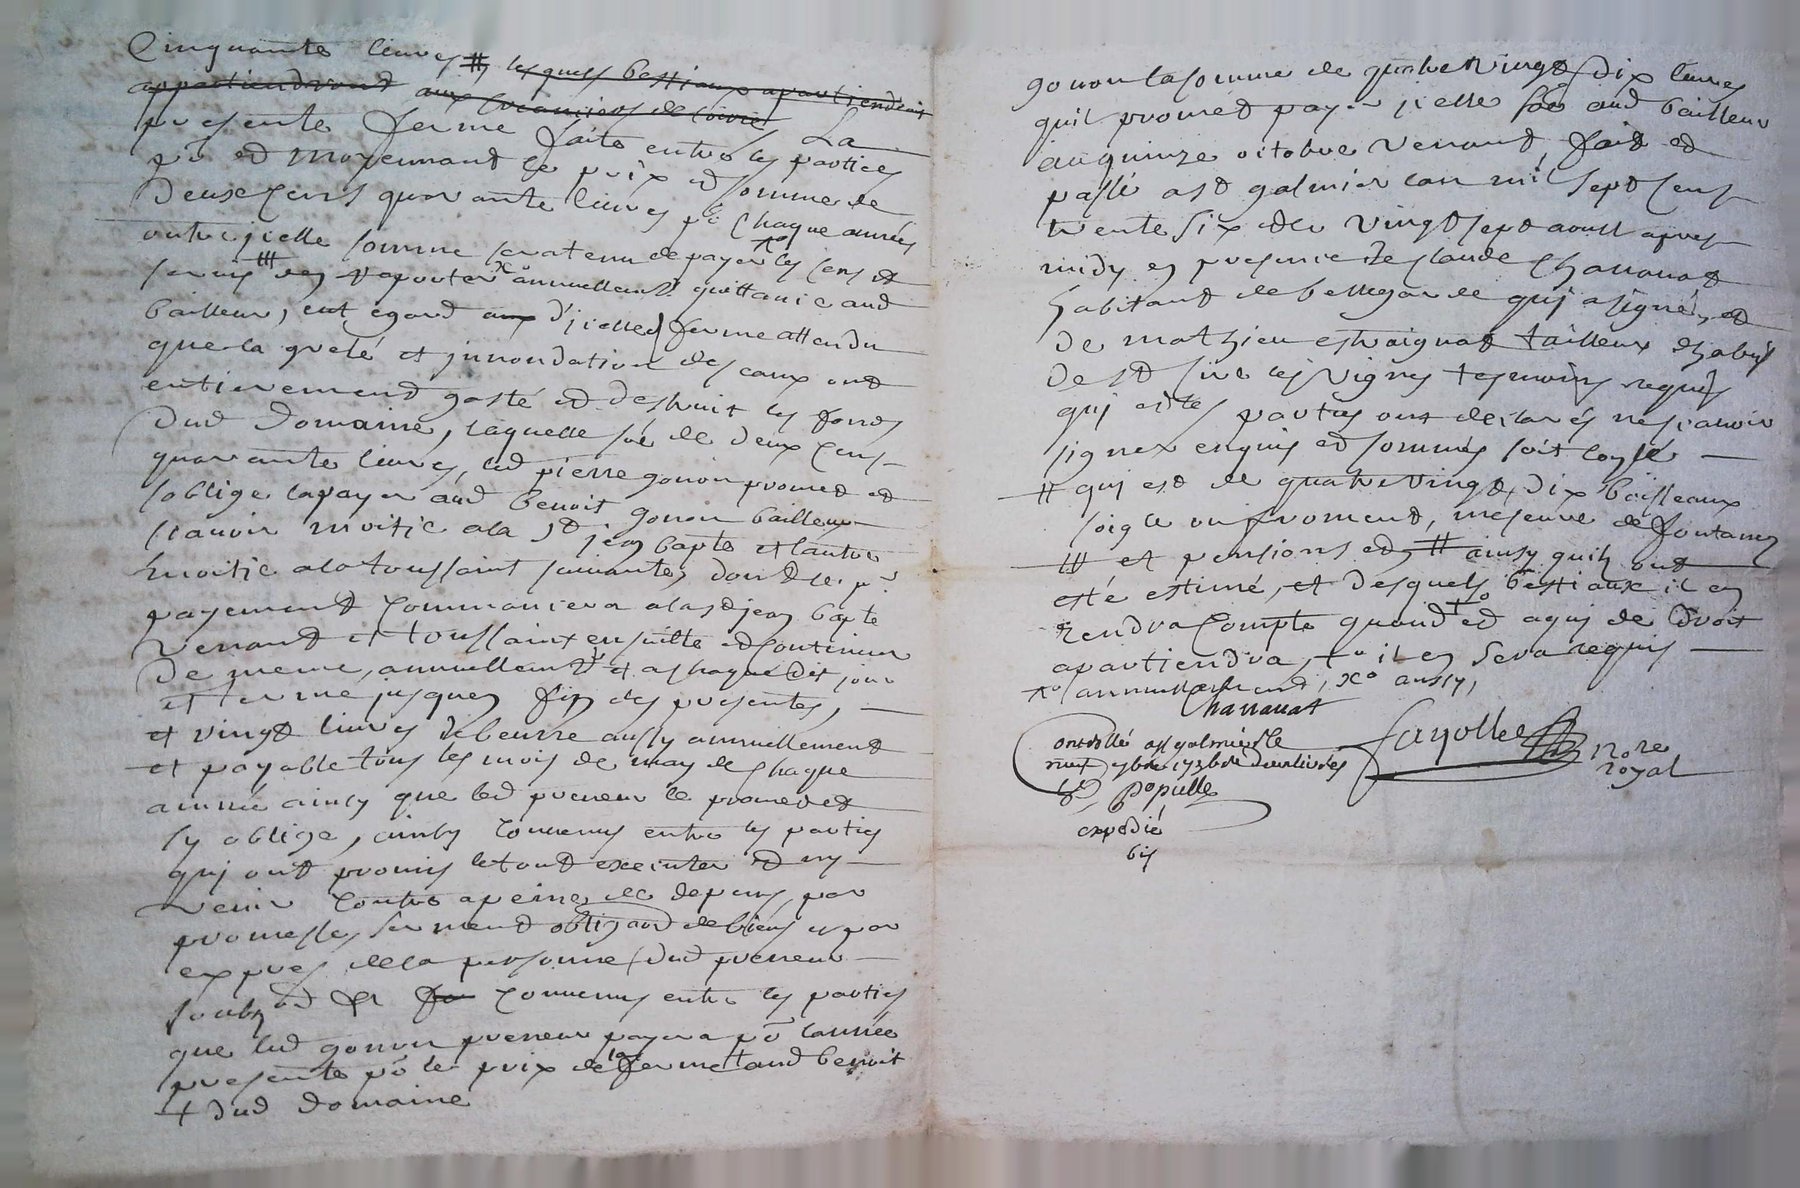 Cinquante livres # lesquels bestiaux apartiendront
appartiendront aux creanciers de
presente ferme faite entre les parties La
po et moyennant le prix et somme de
Deux cens quarante livres po Chaque année
outre jcelle somme sera tenu de payer xo les cens et
servis ### den raporter x annuellemt quittance aud
bailleur, eut egard aux d'jcelle ferme attendu
que la grelé et jnnondation des eaux ont
entierement gasté et destruit les fonds
Dud Domaine, laquelle soe de deux cens
quarante livres, led pierre gonon promet et
soblige la payer aud benoit gonon bailleur
scavoir moitie a la st jean bapte et lautre
moitie a la toussaint suivante, dont le pr
payement Commancera a la st jean bapte
venant et toussaint ensuitte et continuer
De meme, annuellemt et a chaque dit jour
et terme jusques fin des presentes,
et vingt livres de beurre aussy annuellement
et payable tous les mois de may de chaque
année ainsy que led preneur le promet et
sy oblige, ainsy convenus entre les parties
quj ont promis le tout executer et ny
venir Contre a peine de depens, par
promesse, serment obligaon de biens et par
expres de la personne dud preneur
soubz et convenus entre les parties
que led gonon preneur payera po lannée
presente po le prix de la ferme + aud benoit
+ dud Domaine
gonon la somme de quatre vingt dix livres
quil promet payer jcelle soe aud bailleur
au quinze octobre venant, fait et
passé a st galmier lan mil sept cens
trente six et le vingt sept aoust apres
midy en presence de sr claude Charauat
habitant de bellegarde quj a signé, et
De mathieu estraignat tailleur dhabys
De st les vignes tesmoins requis
quj et les parties ont declarés ne scavoir
signer enquis et sommés soit conslé
# quj est de quatre vingt dix boisseaux
soigle ou froment, mesure de fontanes
### et pensions et # ainsy quils ont
esté estimé, et desquels bestiaux il en
rendra Compte quand +o et a quj de Droit
apartiendra, +o il en sera requis
xo annuellement, xo aussy,
Charauat
Fayolle nore
royal
controllé a st galmier le
neuf 7bre 1736 de douze livres
Populle
expedié
bis